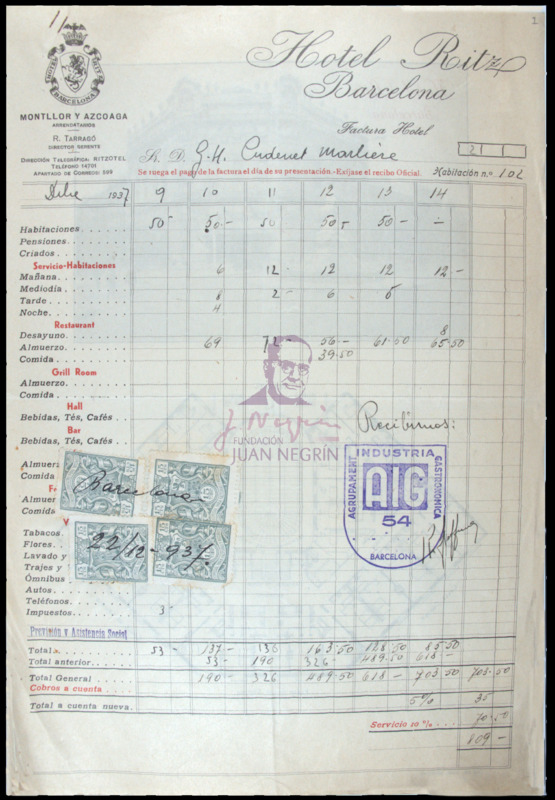 1/
2
HOTEL RITZ
BARCELONA
Hotel Ritz
Barcelona
MONTLLOR Y AZCOAGA
ARRENDATARIOS
R. TARRAGÓ
DIRECTOR GERENTE
DIRECCIÓN TELEGRÁFICA: RITZOTEL
TELÉFONO 14701
APARTADO DE CORREOS 509
Factura Hotel
21
Sr. D. G. H.
Se ruega el pago de la factura el día de su presentación.-Exíjase el recibo Oficial.
Habitación n.º 102
Dibre 1937 9 10 11 12 13 14
Habitaciones 50 - 50 - 50 50 50 - -
Pensiones
Criados
Servicio-Habitaciones
Mañana 6 12 12 12 12 -
Mediodía 8 2 - 6 5
Tarde 4
Noche
Restaurant
Desayuno 8
Almuerzo 69 72 - 56 - 61.50 65.50
Comida 39.50
Grill Room
Almuerzo
Comida
Hall
Bebidas, Tés, Cafés
Bar
Bebidas, Tés, Cafés
J. Negrín
FUNDACIÓN
JUAN NEGRÍN
Recibimos:
AGRUPAMENT INDUSTRIA GASTRONOMICA
AIG
54
BARCELONA
Almuer
Comida
Almuer
Comida
Barcelona
22/12-937.
Tabacos
Flores
Lavado y
Trajes y
Ómnibus
Autos
Teléfonos
Impuestos 3
Previsión y Asistencia Social
Total 53 - 137 - 136 163.50 128.50 85.50
Total anterior 53 - 190 326 489.50 618
Total General 190 - 326 489.50 618 - 703.50 703.50
Cobros a cuenta
Total a cuenta nueva 5% 35
Servicio 10 % 70.50
809 -